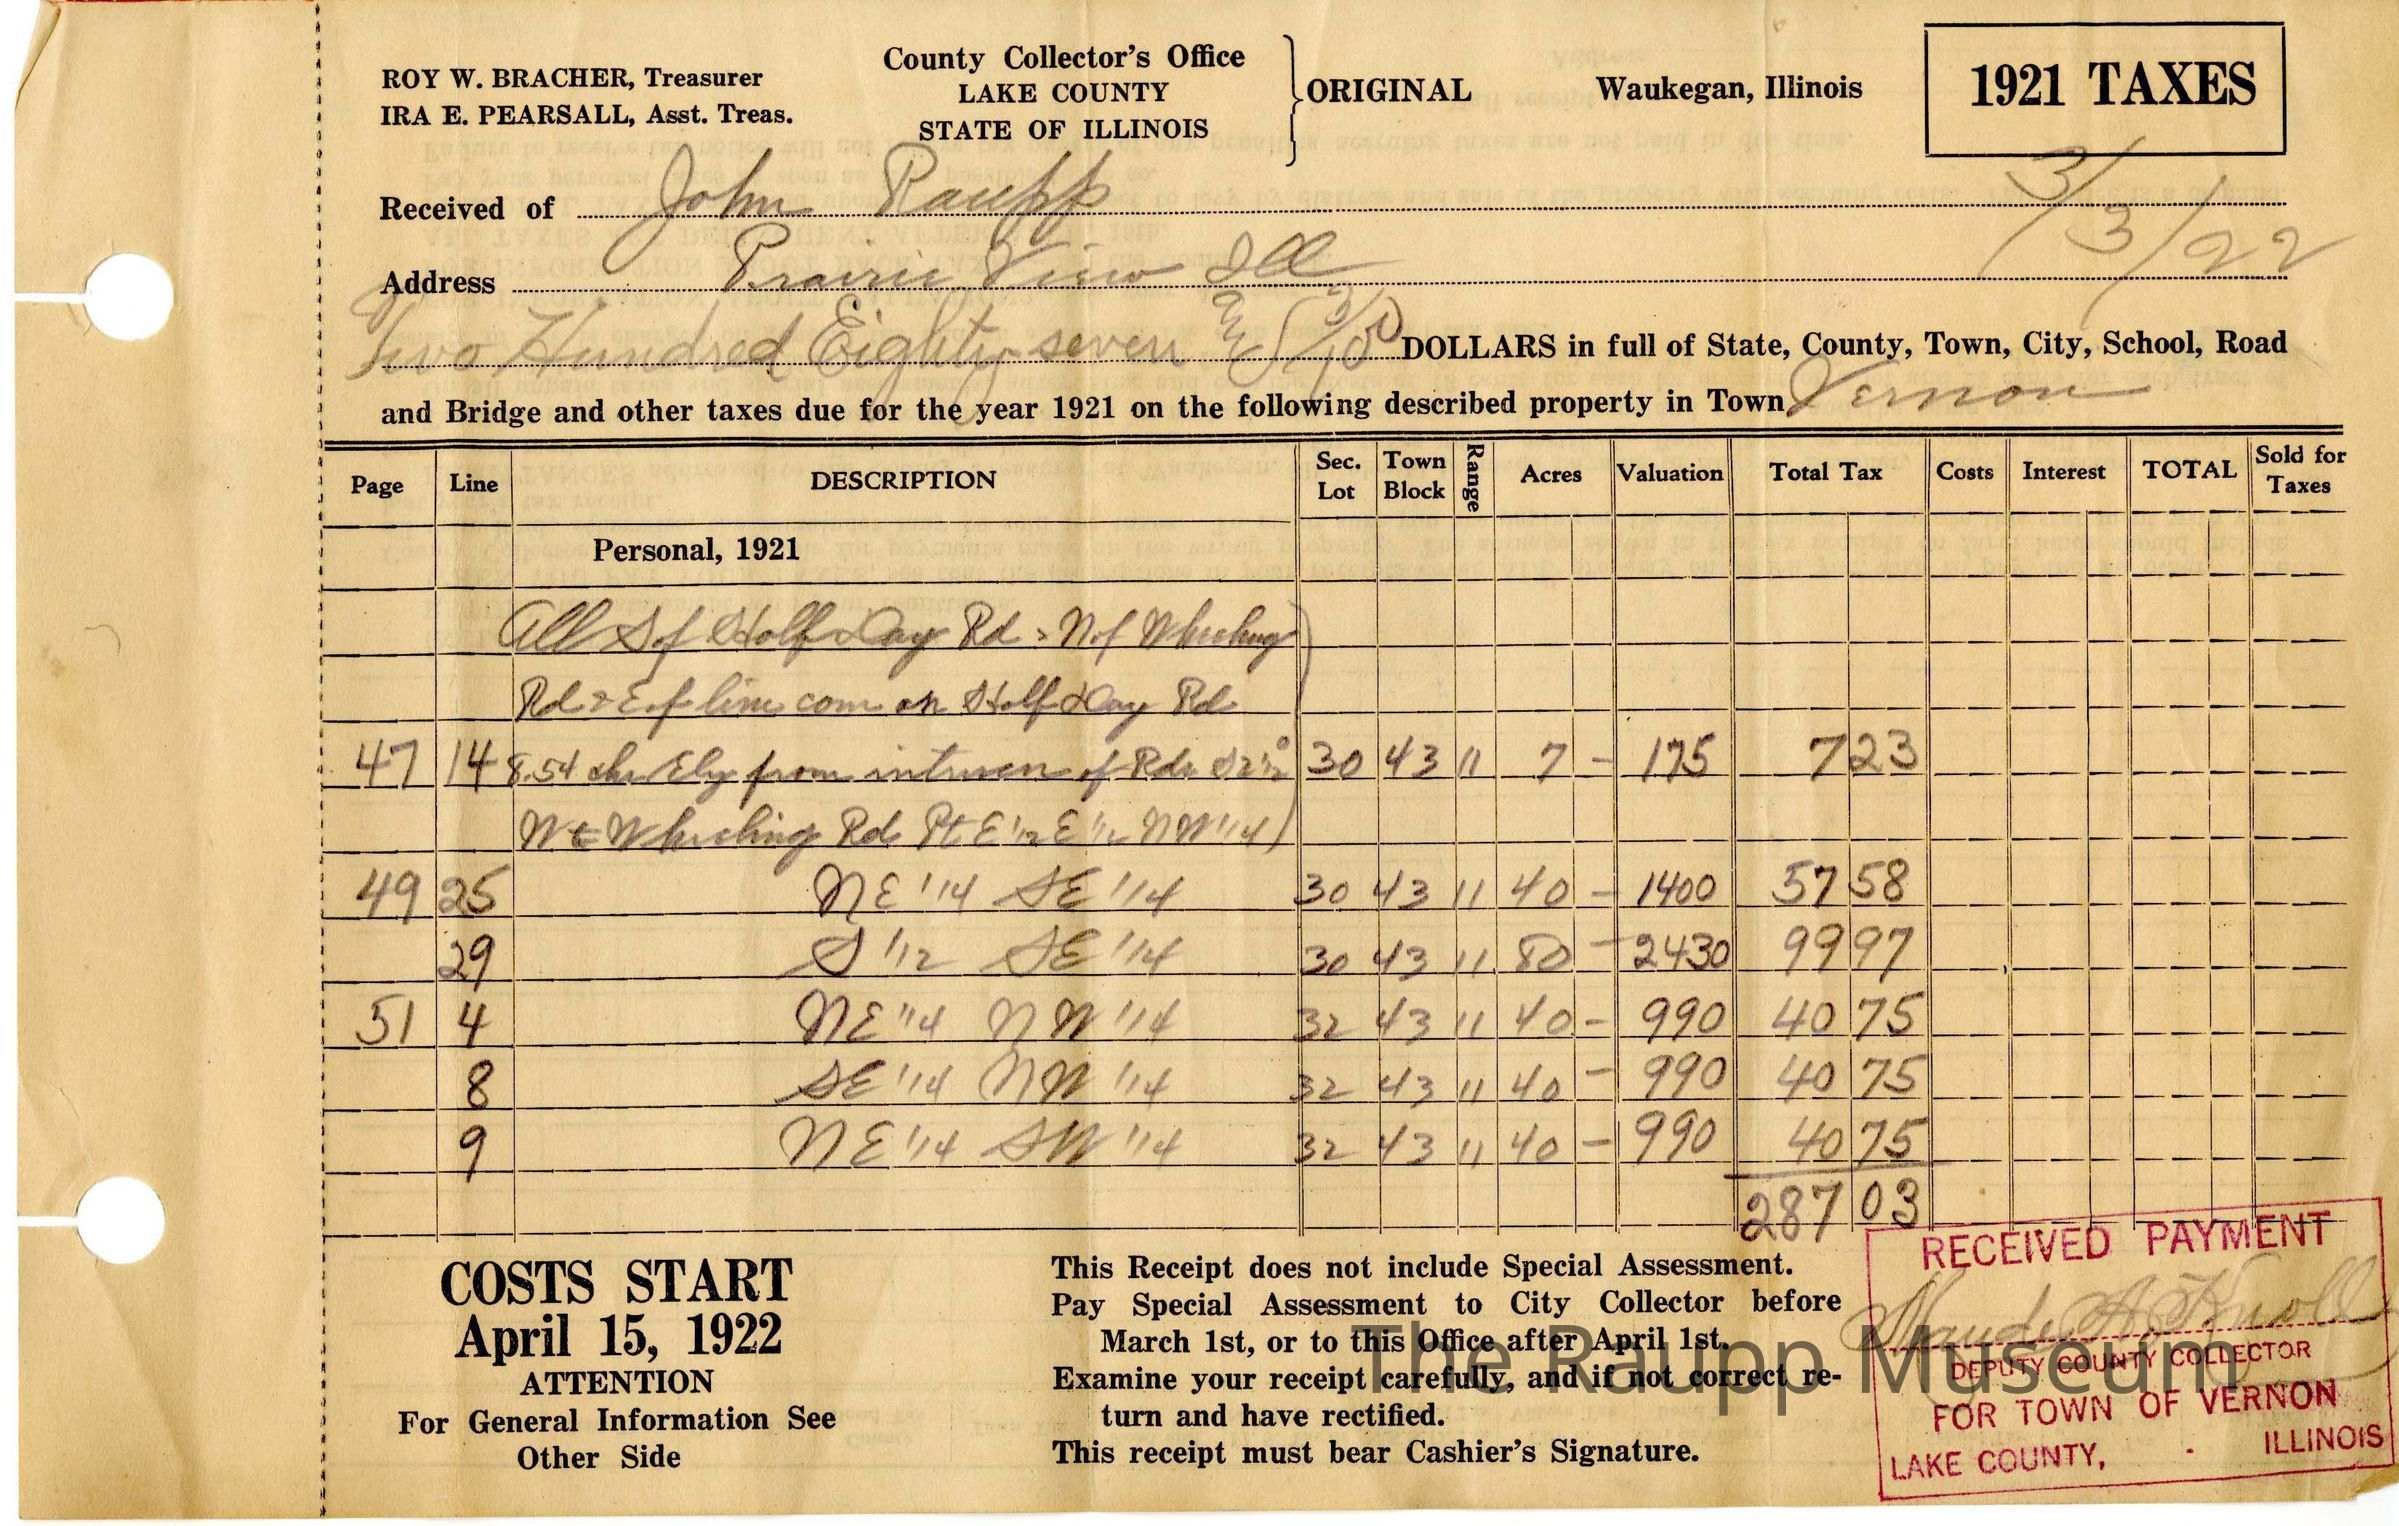 ROY W. BRACHER, Treasurer
IRA E. PEARSALL, Asst. Treas.
County Collector's Office
LAKE COUNTY
STATE OF ILLINOIS
ORIGINAL
Waukegan, Illinois
1921 TAXES
3/3/22
Received of John Raupp
Address Prairie View Ill
Two Hundred Eighty-seven & 3/100 DOLLARS in full of State, County, Town, City, School, Road
and Bridge and other taxes due for the year 1921 on the following described property in Town Vernon
Page Line DESCRIPTION Sec. Lot Town Block Range Acres Valuation Total Tax Costs Interest TOTAL Sold for Taxes
Personal, 1921
All S of Half Day Rd & N of Wheeling
Rd & E of line com on Half Day Rd
47 14 8.54 chs Ely from of Rds S 2 1/2° 30 43 11 7 - 175 7 23
W to Wheeling Rd Pt E 1/2 E 1/2 NW 1/4
49 25 NE 1/4 SE 1/4 30 43 11 40 - 1400 57 58
29 S 1/2 SE 1/4 30 43 11 80 - 2430 99 97
51 4 NE 1/4 NW 1/4 32 43 11 40 - 990 40 75
8 SE 1/4 NW 1/4 32 43 11 40 - 990 40 75
9 NE 1/4 SW 1/4 32 43 11 40 - 990 40 75
287 03
COSTS START
April 15, 1922
ATTENTION
For General Information See
Other Side
This Receipt does not include Special Assessment.
Pay Special Assessment to City Collector before
March 1st, or to this Office after April 1st.
Examine your receipt carefully, and if not correct re-
turn and have rectified.
This receipt must bear Cashier's Signature.
RECEIVED PAYMENT
Maude A. Knoll
DEPUTY COUNTY COLLECTOR
FOR TOWN OF VERNON
LAKE COUNTY, ILLINOIS
The Raupp Museum